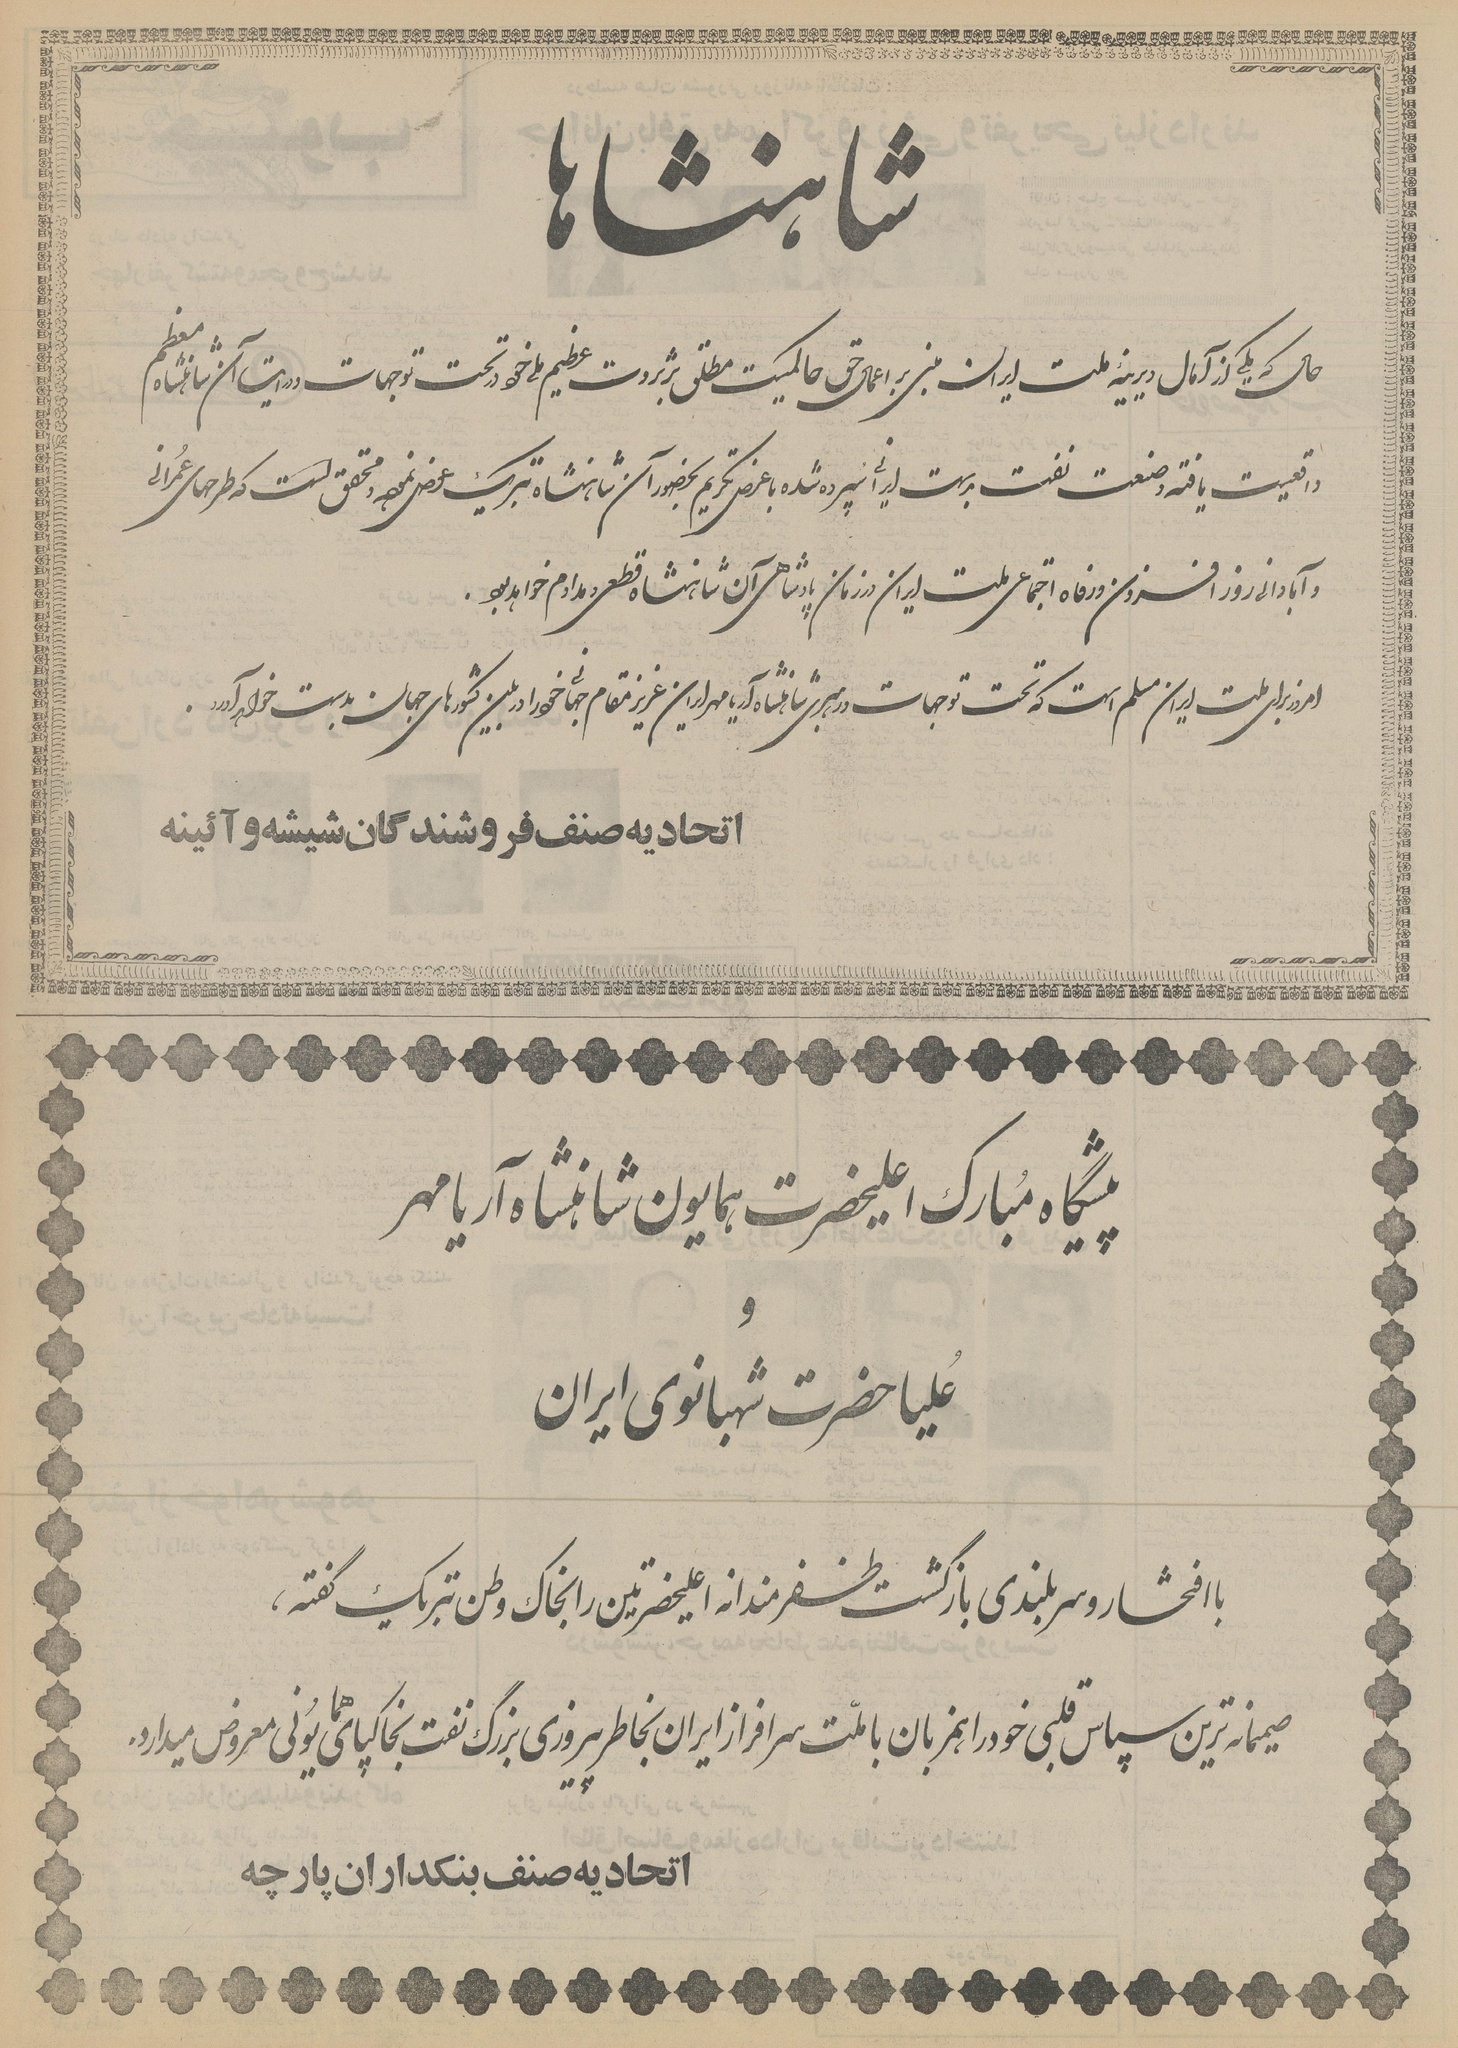 شاهنشاها
حال که یکی از آمال دیرینهٔ ملت ایران مبنی بر اعمال حق حاکمیت مطلق بر ثروت عظیم ملی خود در تحت توجهات و درایت آن شاهنشاه معظم
واقعیت یافته و صنعت نفت بدست ایرانی سپرده شده با عرض تکریم بحضور آن شاهنشاه تبریک عرض نموده و محقق است که طرحهای عمرانی
و آبادانی روز افزون و رفاه اجتماعی ملت ایران در زمان پادشاهی آن شاهنشاه قطعی و مداوم خواهد بود .
امروز برای ملت ایران مسلم است که تحت توجهات و رهبری شاهنشاه آریامهر ایران عزیز مقام جهانی خود را در بین کشورهای جهان بدست خواهد آورد .
اتحادیه صنف فروشندگان شیشه و آئینه
پیشگاه مُبارک اعلیحضرت همایون شاهنشاه آریامهر
و
عُلیاحضرت شهبانوی ایران
با افتخار و سربلندی بازگشت ظفرمندانه اعلیحضرتین را بخاک وطن تبریک گفته ،
صمیمانه ترین سپاس قلبی خود را همزبان با ملّت سرافراز ایران بخاطر پیروزی بزرگ نفت بخاکپای همایونی معروض میدارد.
اتحادیه صنف بنکداران پارچه